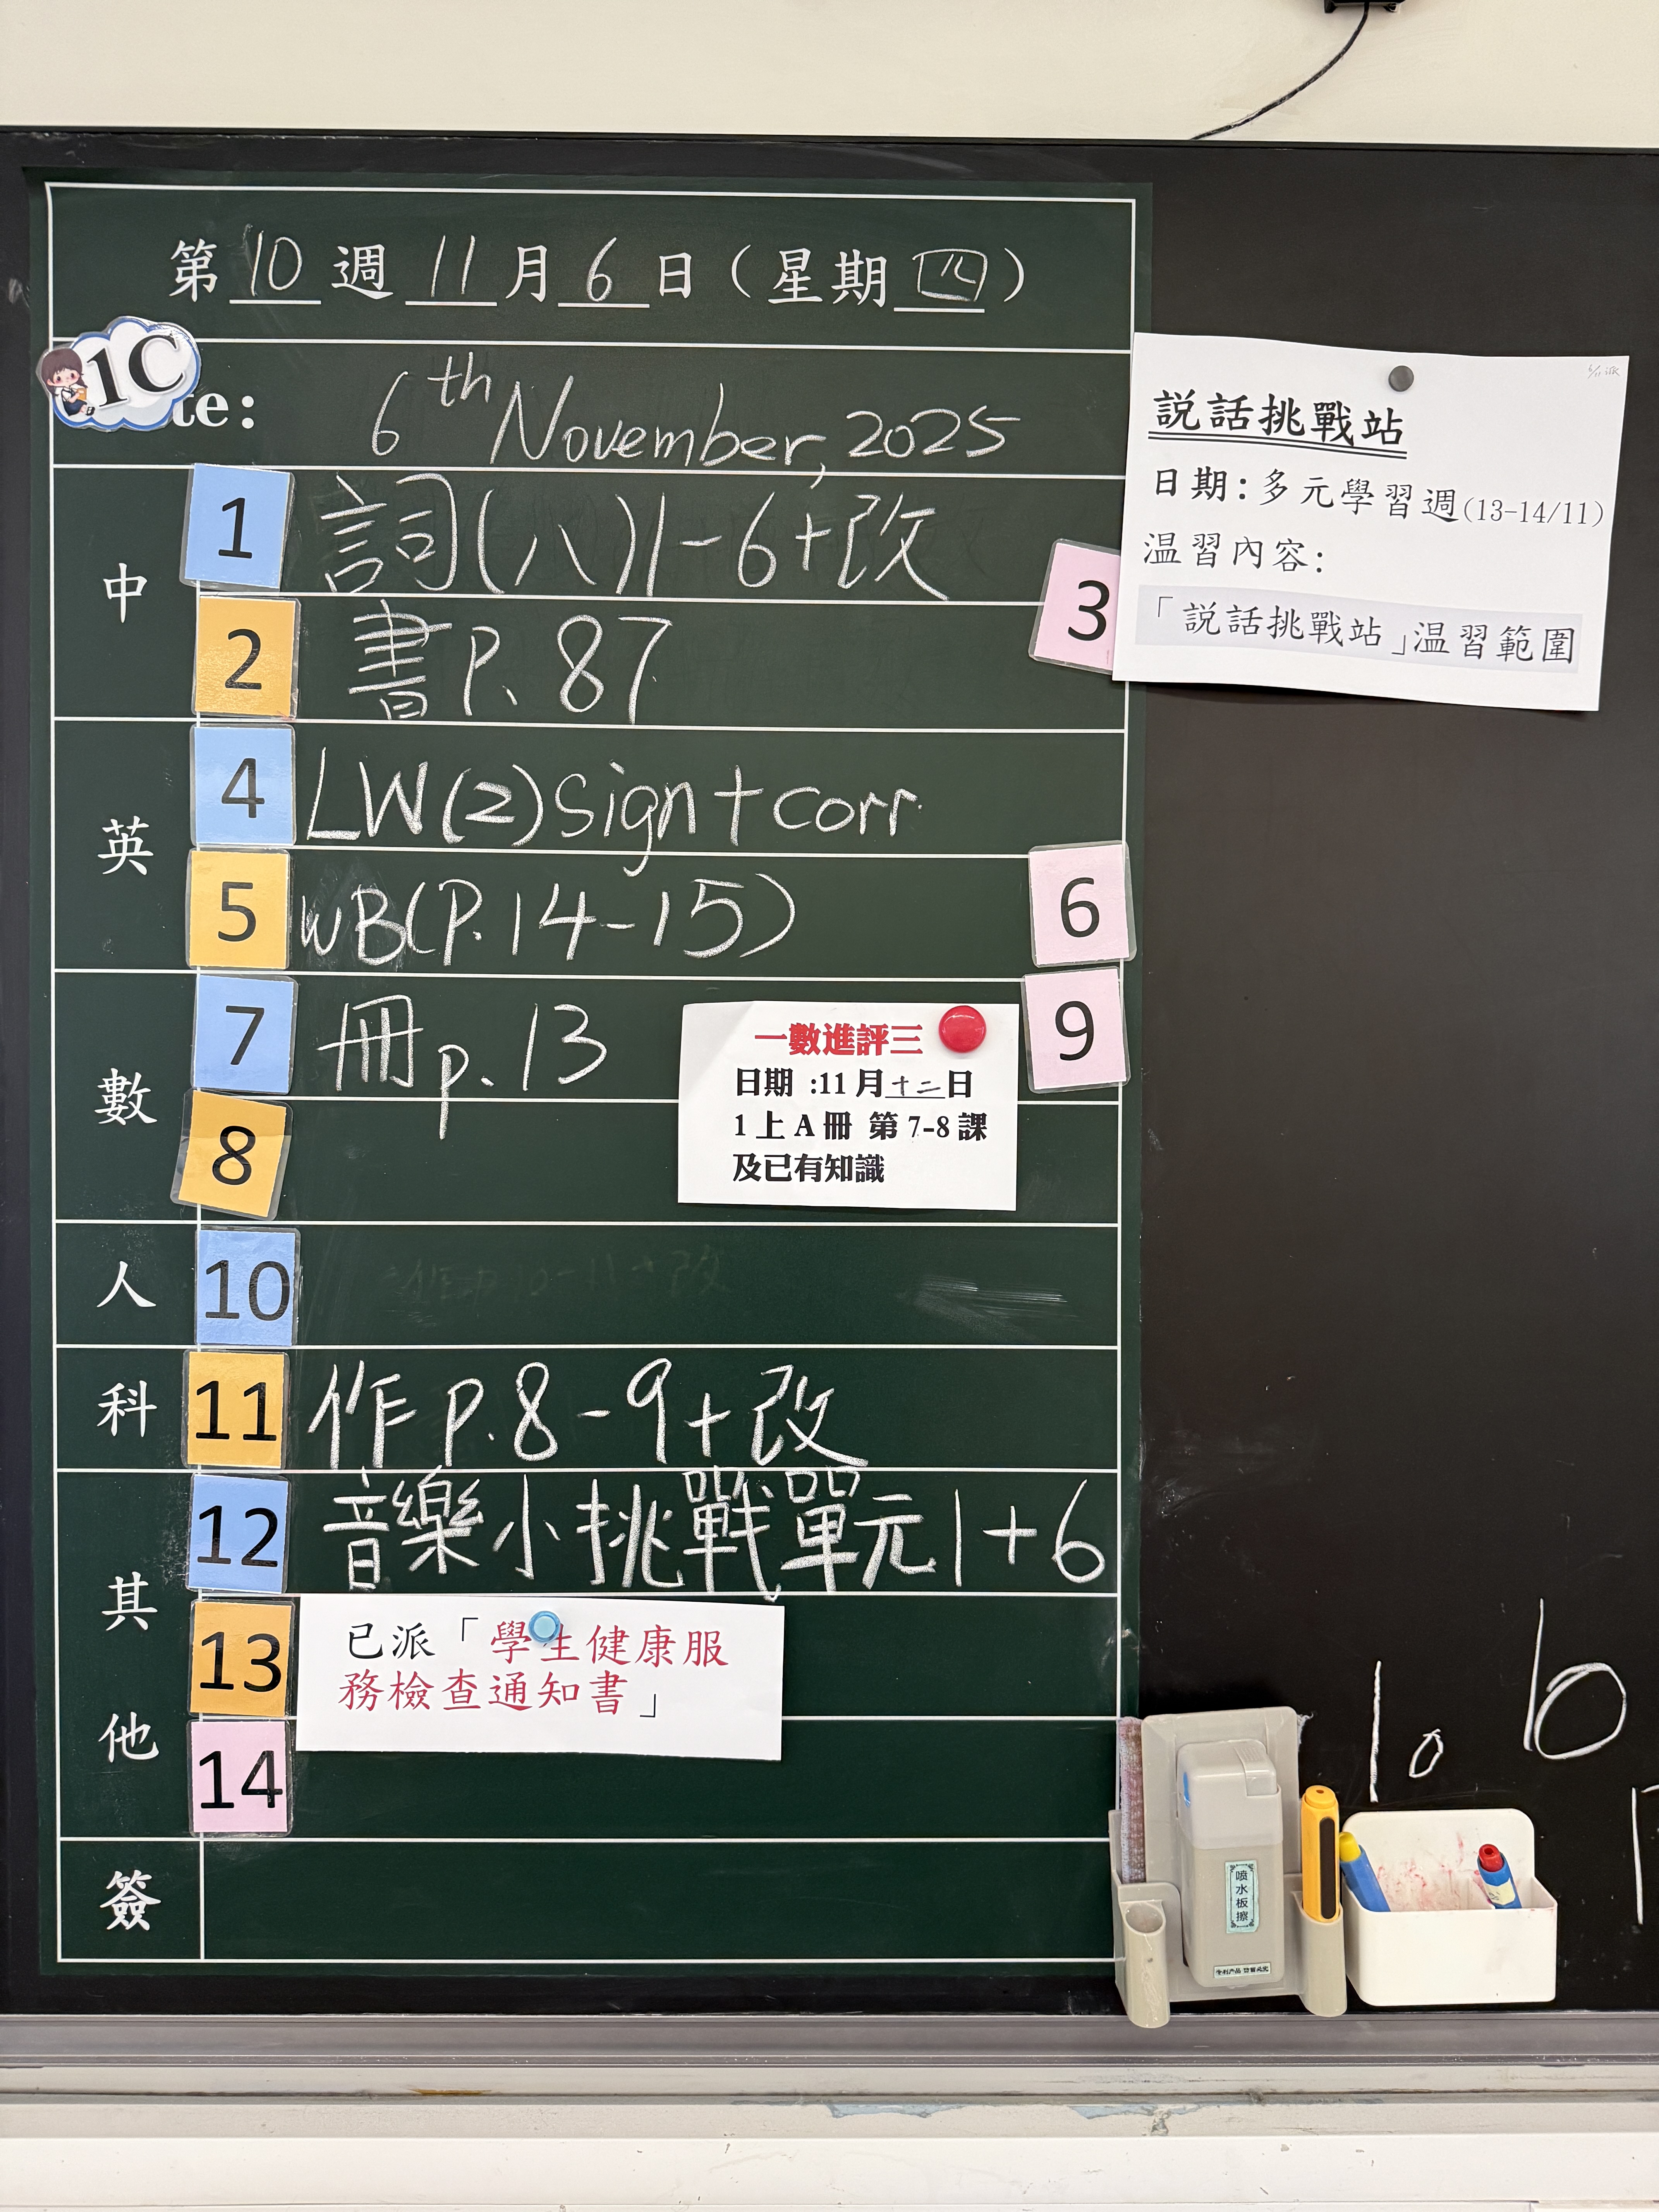 第 10 週 11 月 6 日（星期 四）
1C
te: 6th November, 2025
中
1 詞(八)1-6+改
2 書P. 87
3
英
4 LW(2)sign+corr.
5 WB(P.14-15)
6
數
7 冊p.13
8
9
一數進評三
日期 :11月十二日
1上A冊 第7-8課
及已有知識
人
10
科
11 作P.8-9+改
其他
12 音樂小挑戰單元1+6
13 已派「學生健康服
務檢查通知書」
14
簽
説話挑戰站
日期:多元學習週(13-14/11)
温習內容:
「説話挑戰站」温習範圍
噴水板擦
10
6